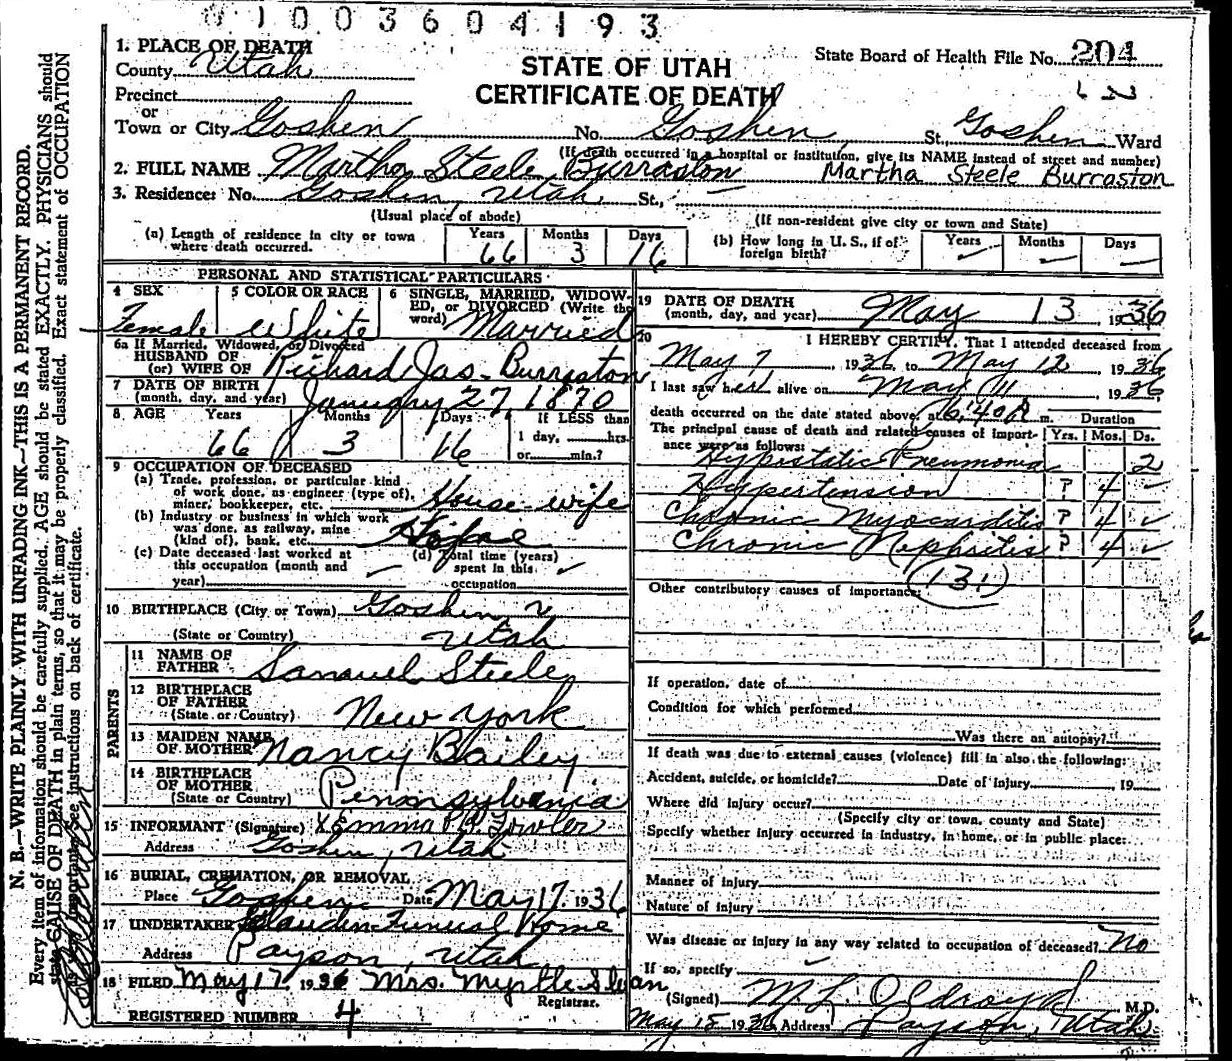 01003604193
1. PLACE OF DEATH
County Utah
State Board of Health File No. 204
STATE OF UTAH
CERTIFICATE OF DEATH
Precinct
or
Town or City Goshen No. Goshen, St., Goshen Ward
(If death occurred in a hospital or institution, give its NAME instead of street and number)
2. FULL NAME Martha Steele Burraston Martha Steele Burraston
3. Residences No. Goshen, Utah. St.,
(Usual place of abode) (If non-resident give city or town and State)
(a) Length of residence in city or town where death occurred. Years 66 Months 3 Days 16
(b) How long in U. S., if of foreign birth? Years — Months — Days —
PERSONAL AND STATISTICAL PARTICULARS
4 SEX Female
5 COLOR OR RACE White
6 SINGLE, MARRIED, WIDOWED, or DIVORCED (Write the word) Married
6a If Married, Widowed, or Divorced
HUSBAND OF
(or) WIFE OF Richard Jas. Burraston
7 DATE OF BIRTH
(month, day, and year) January 27 1870
8 AGE Years 66 Months 3 Days 16 If LESS than
1 day, hrs.
or min.?
9 OCCUPATION OF DECEASED
(a) Trade, profession, or particular kind
of work done, as engineer (type of),
miner, bookkeeper, etc. House-wife
(b) Industry or business in which work
was done, as railway, mine
(kind of), bank, etc.
(c) Date deceased last worked at
this occupation (month and
year)
(d) Total time (years)
spent in this
occupation
10 BIRTHPLACE (City or Town) Goshen
(State or Country) Utah
PARENTS
11 NAME OF
FATHER Samuel Steele
12 BIRTHPLACE
OF FATHER
(State or Country) New York
13 MAIDEN NAME
OF MOTHER Nancy Bailey
14 BIRTHPLACE
OF MOTHER
(State or Country) Pennsylvania
15 INFORMANT (Signature) Emma Fowler
Address Goshen, Utah
16 BURIAL, CREMATION, OR REMOVAL
Place Goshen Date May 17, 1936
17 UNDERTAKER Funeral Home
Address Payson, Utah
18 FILED May 17 1936 Mrs. Myrtle Sloan
Registrar.
REGISTERED NUMBER 4
19 DATE OF DEATH
(month, day, and year) May 13, 1936
20 I HEREBY CERTIFY, That I attended deceased from
May 7, 1936 to May 12, 1936
I last saw her alive on May 11, 1936
death occurred on the date stated above, at 6:40 P. m.
The principal cause of death and related causes of importance were as follows:
Duration
Yrs. Mos. Ds.
Hypostatic Pneumonia 2
Hypertension ? 4 -
Chronic Myocarditis ? 4 ✓
Chronic Nephritis ? 4 ✓
(131)
Other contributory causes of importance:
If operation, date of
Condition for which performed
Was there an autopsy?
If death was due to external causes (violence) fill in also the following:
Accident, suicide, or homicide? Date of injury , 19
Where did injury occur?
(Specify city or town, county and State)
Specify whether injury occurred in industry, in home, or in public place:
Manner of injury
Nature of injury
Was disease or injury in any way related to occupation of deceased? No
If so, specify
(Signed) M L Oldroyd M.D.
May 15 1936 Address Payson, Utah
N. B.—WRITE PLAINLY WITH UNFADING INK—THIS IS A PERMANENT RECORD.
Every item of information should be carefully supplied. AGE should be stated EXACTLY. PHYSICIANS should
state CAUSE OF DEATH in plain terms, so that it may be properly classified. Exact statement of OCCUPATION
is important. See instructions on back of certificate.